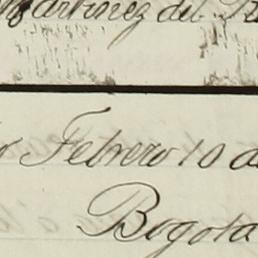 Martinez del
Febrero 10 de
Bogota